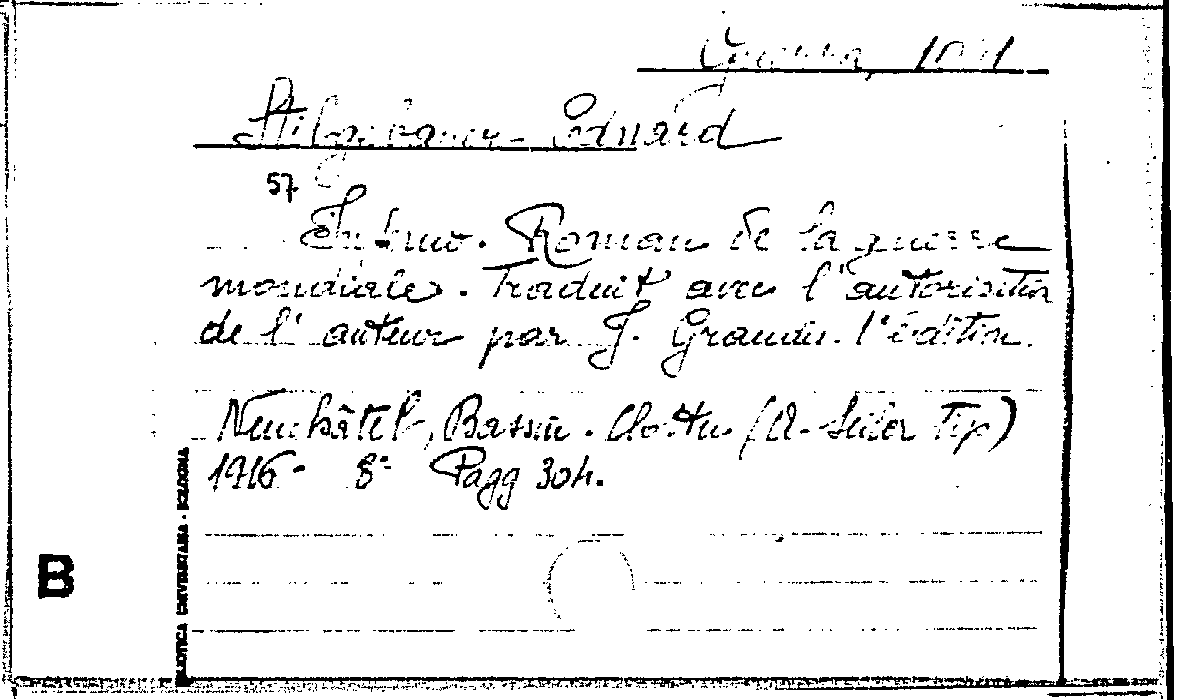 Guerra, 1041
Stilgebauer Edward
57
Inferno. Roman de la guerre
mondiale. Traduit avec l'autorisation
de l'auteur par J. Grandu. 1e édition.
Neuchâtel, Bassin. Clottu (A. Seiler Tip)
1916. 8° Pagg 304.
B
BIBLIOTICA UNIVERSITARIA - BOLOGNA